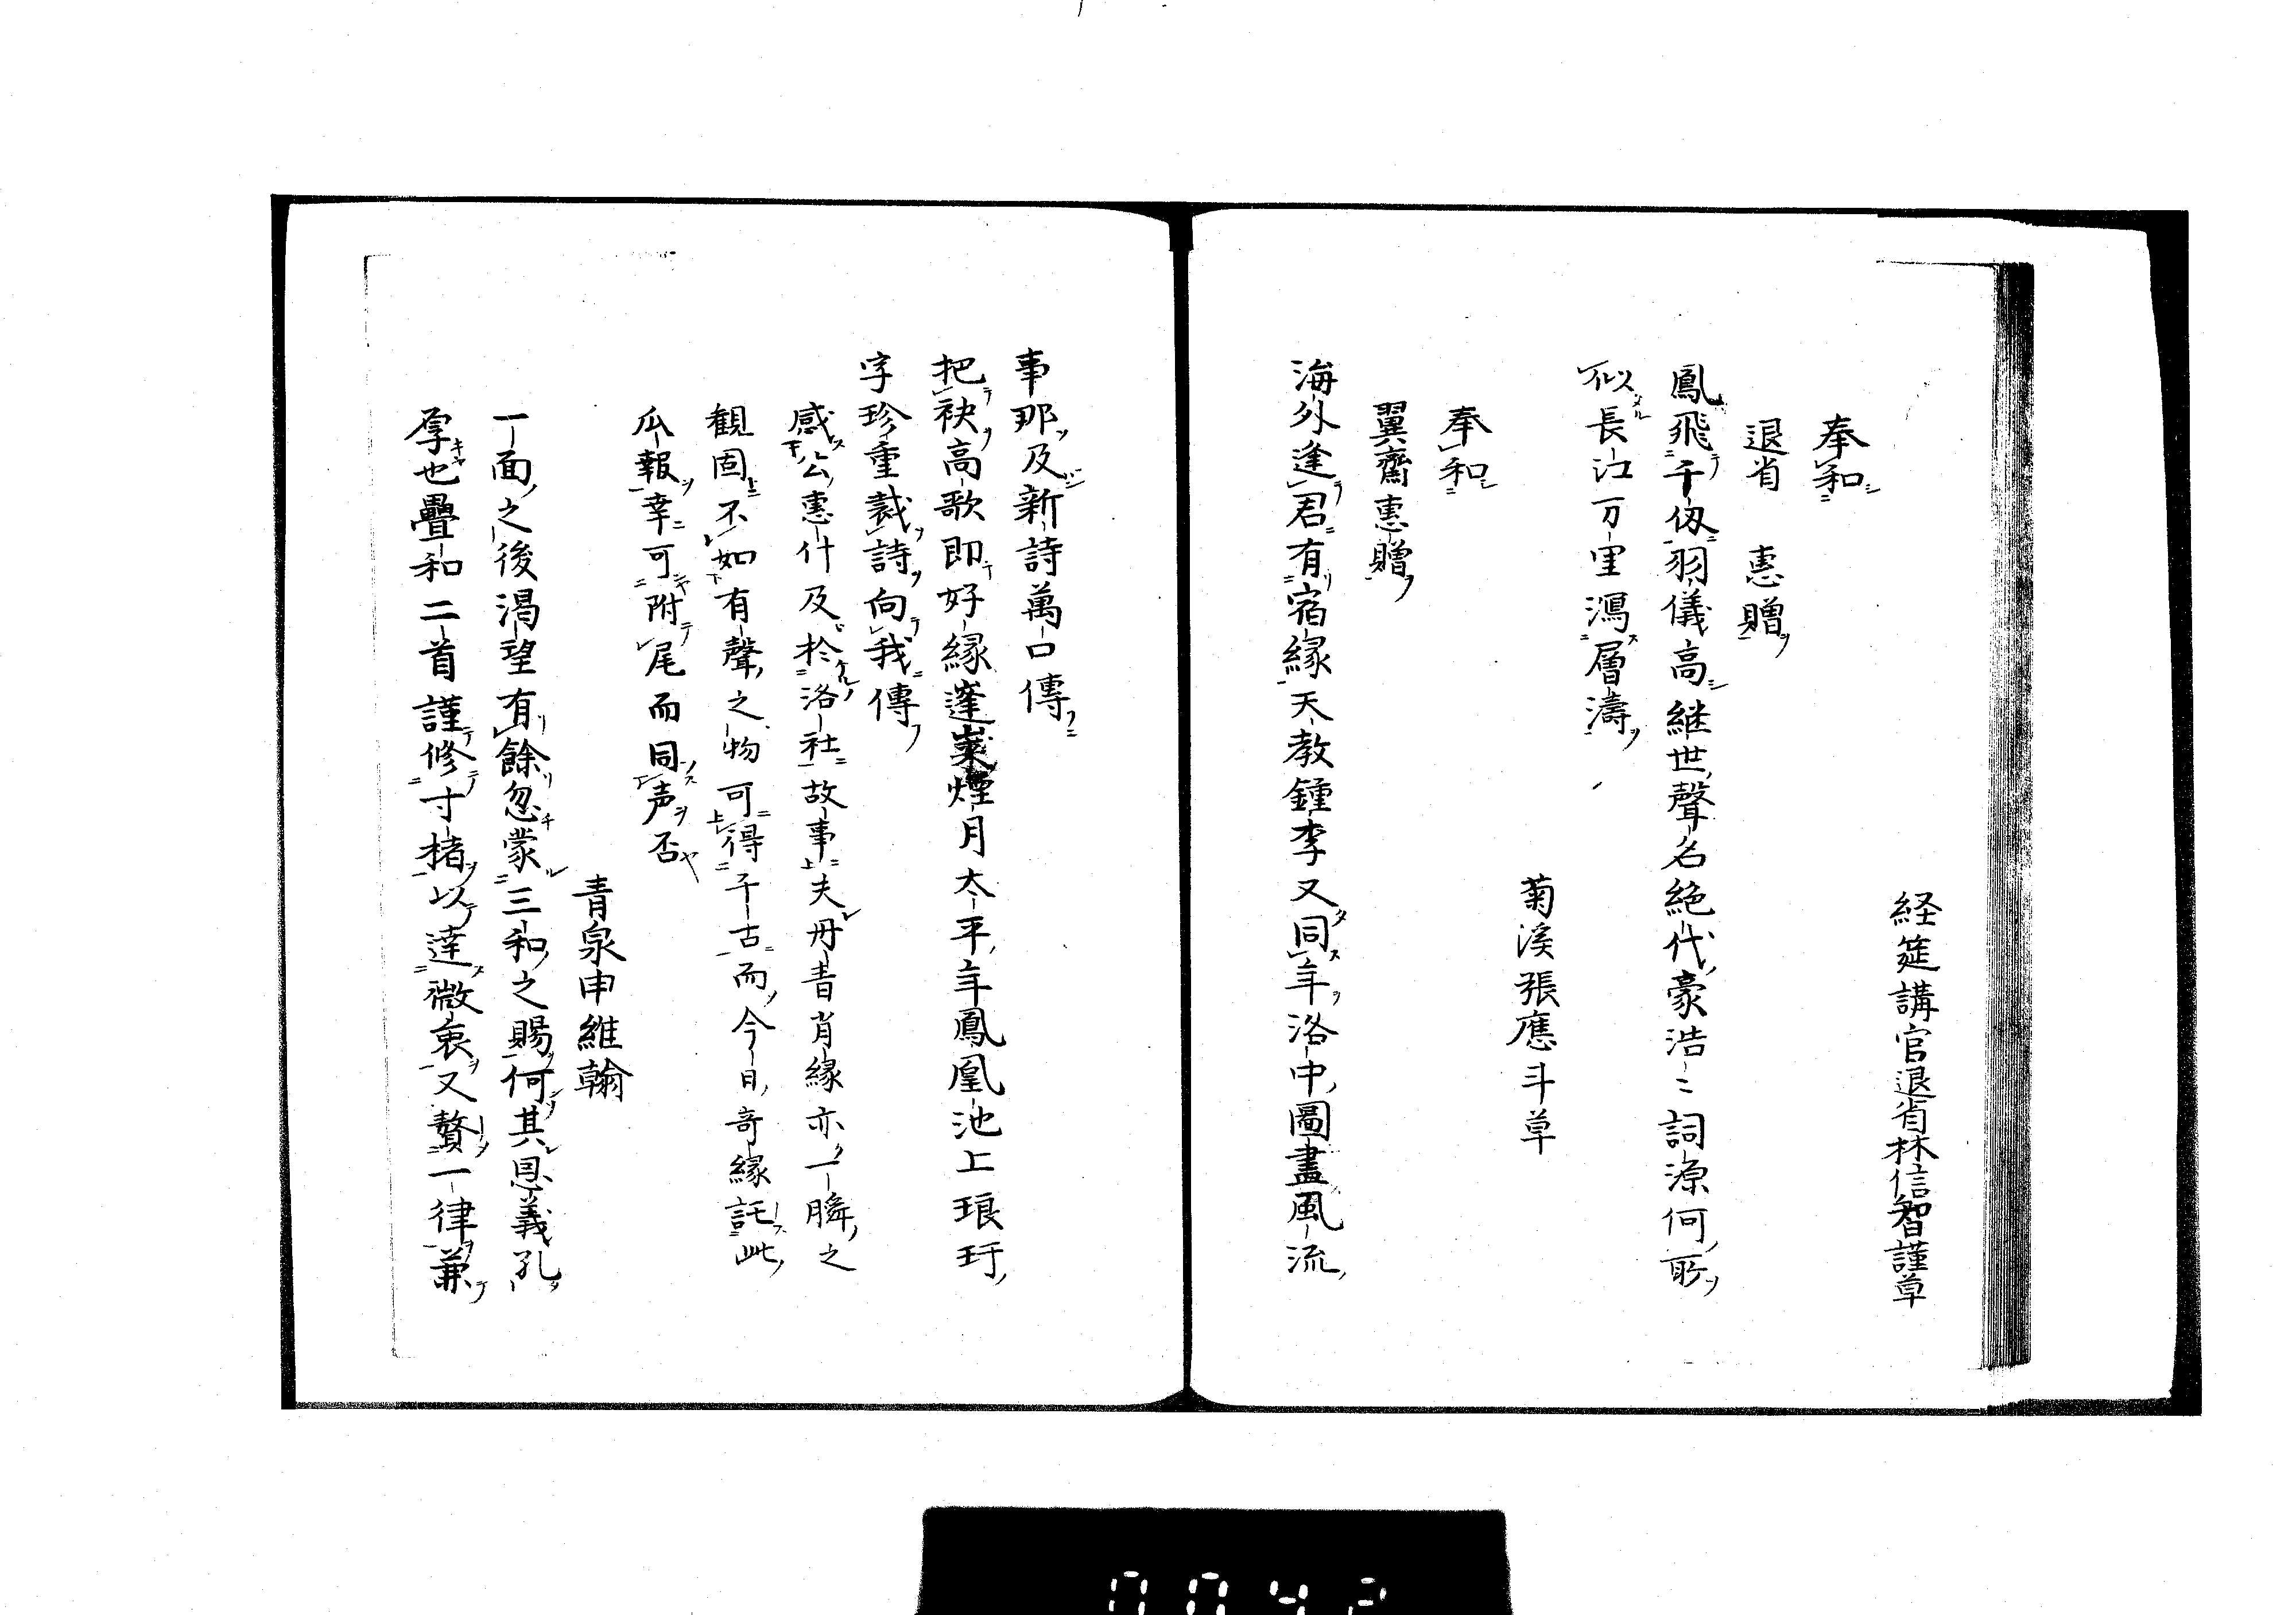 経筵講官退省林信智謹草
奉和
退省 惠贈
鳳飛千仭羽儀高継世聲名絶代豪浩〻詞源何所
似長江万里瀉層濤
菊溪張應斗草
奉和
翼齋惠贈
海外逢君有宿緣天教鍾李又同年洛中圖畫風流
事那及新詩萬口傳
把袂高歌即好緣蓬莱煙月太平年鳳凰池上琅玕
字珍重裁詩向我傳
感公惠什及於洛社故事夫丹青肖緣亦一勝之
観固不如有聲之物可得千古而今日奇緣託此
瓜報幸可附尾而同声否
青泉申維翰
一面之後渇望有餘忽蒙三和之賜何其恩義孔
厚也疊和二首謹修寸楮以達微衷又贅一律兼
0042